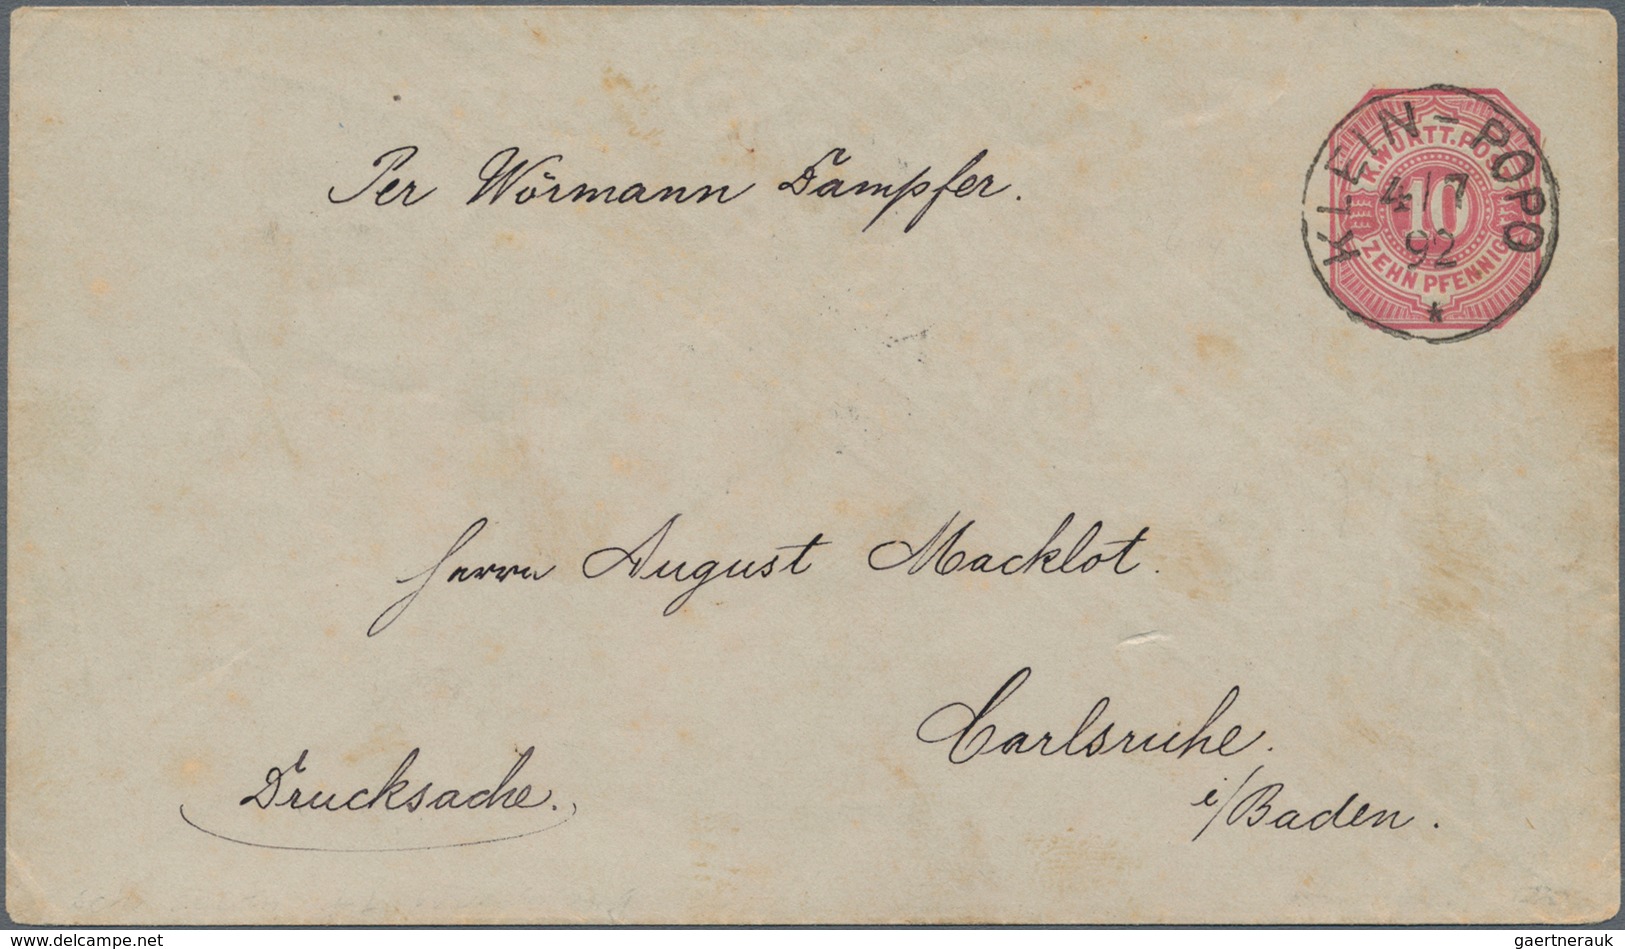 Per Wörmann Dampfer.
KLEIN-POPO
4/7
92
*
K.WÜRTT.POST
10
ZEHN PFENNIG
Herrn August Macklot.
Carlsruhe.
i/Baden.
Drucksache.
www.delcampe.net
gaertnerauk